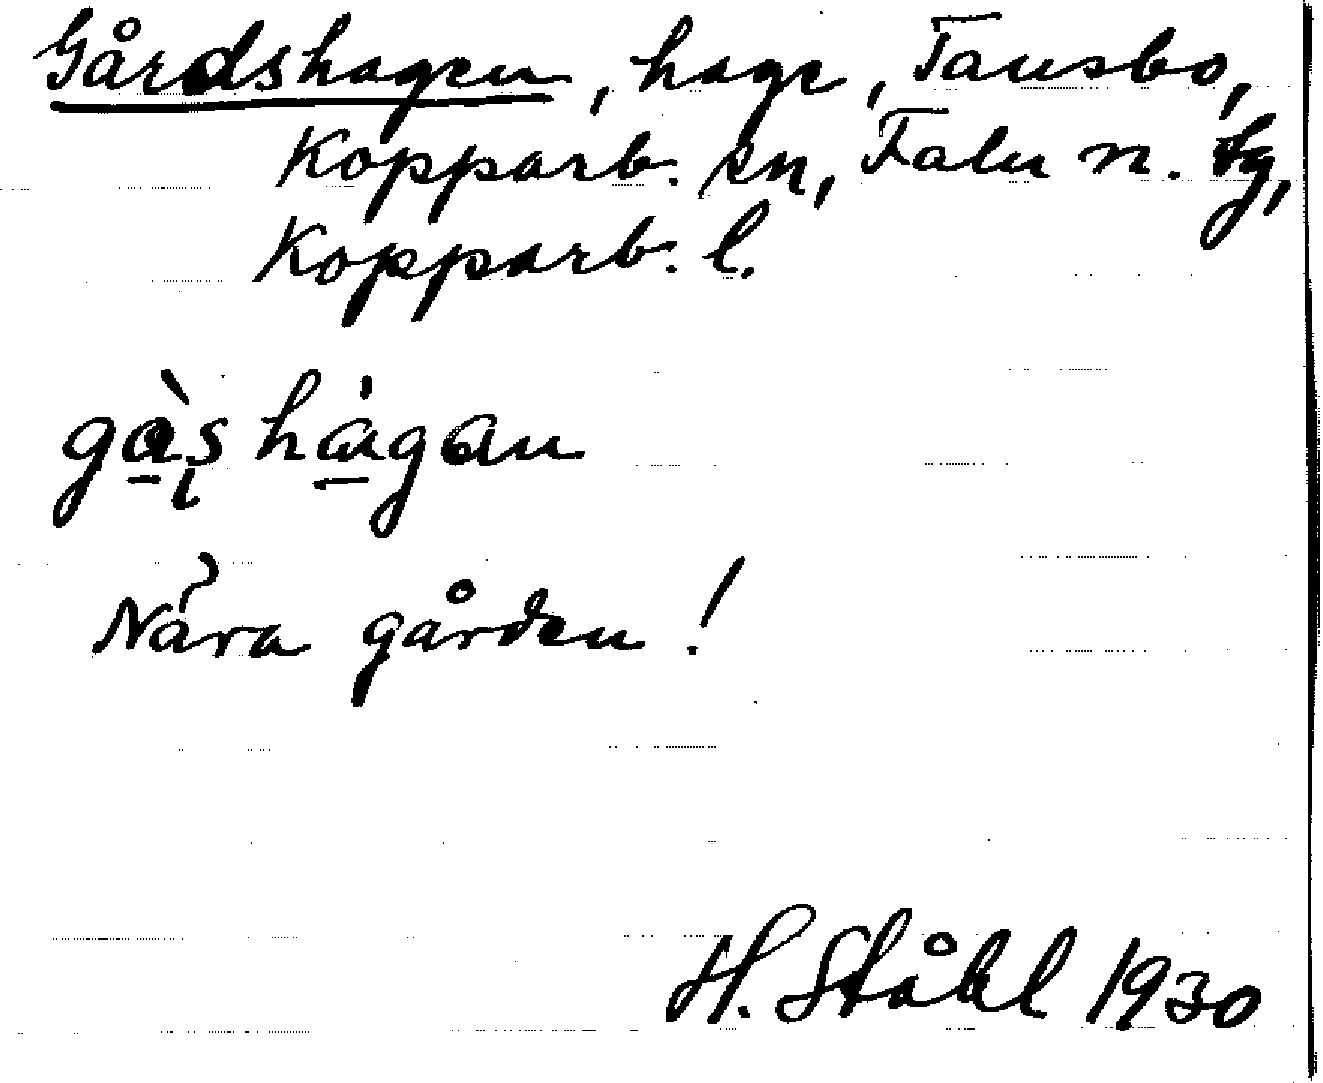 Gårdshagen, hage, Tansbo,
Kopparb. sn, Falu n. tg,
Kopparb. l.
gàs hàgan
Nära gården!
H. Ståhl 1930